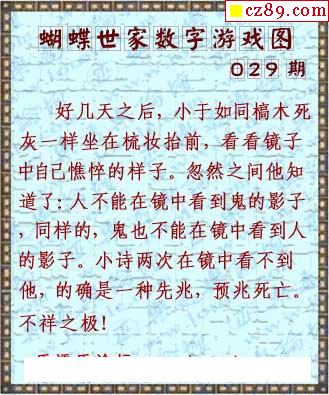 cz89.com
蝴蝶世家数字游戏图
029 期
好几天之后，小于如同槁木死
灰一样坐在梳妆抬前，看看镜子
中自己憔悴的样子。忽然之间他知
道了：人不能在镜中看到鬼的影子
，同样的，鬼也不能在镜中看到人
的影子。小诗两次在镜中看不到
他，的确是一种先兆，预兆死亡。
不祥之极！